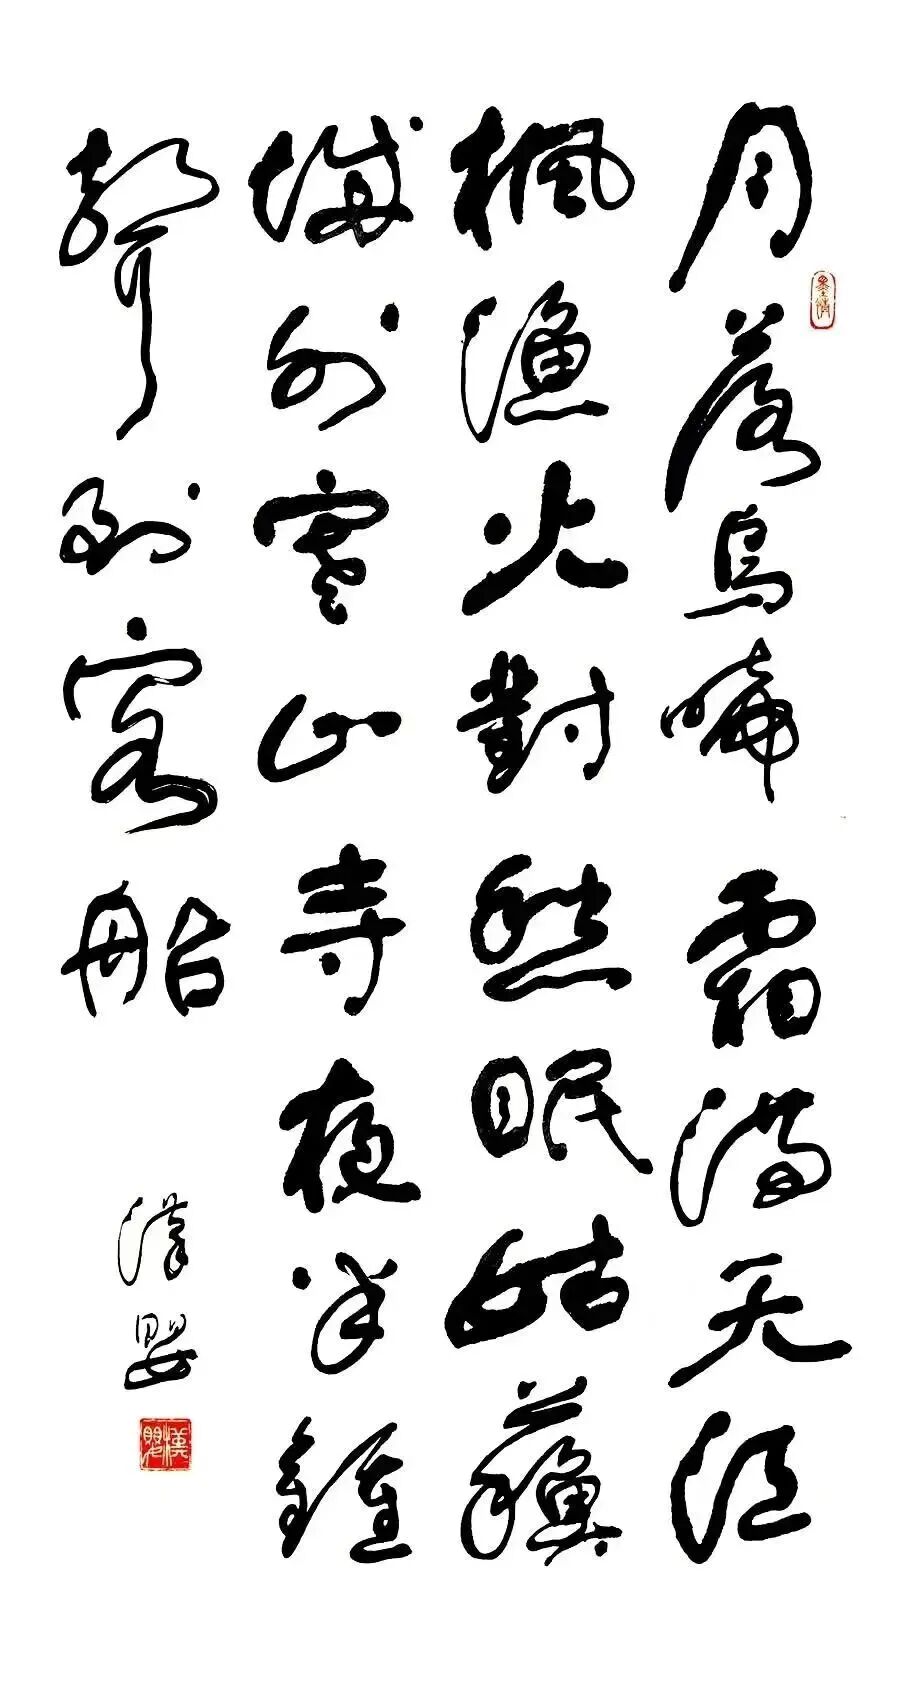 月落烏啼霜滿天江
楓漁火對愁眠姑蘇
城外寒山寺夜半鍾
聲到客船
漢嬰
墨情
漢嬰